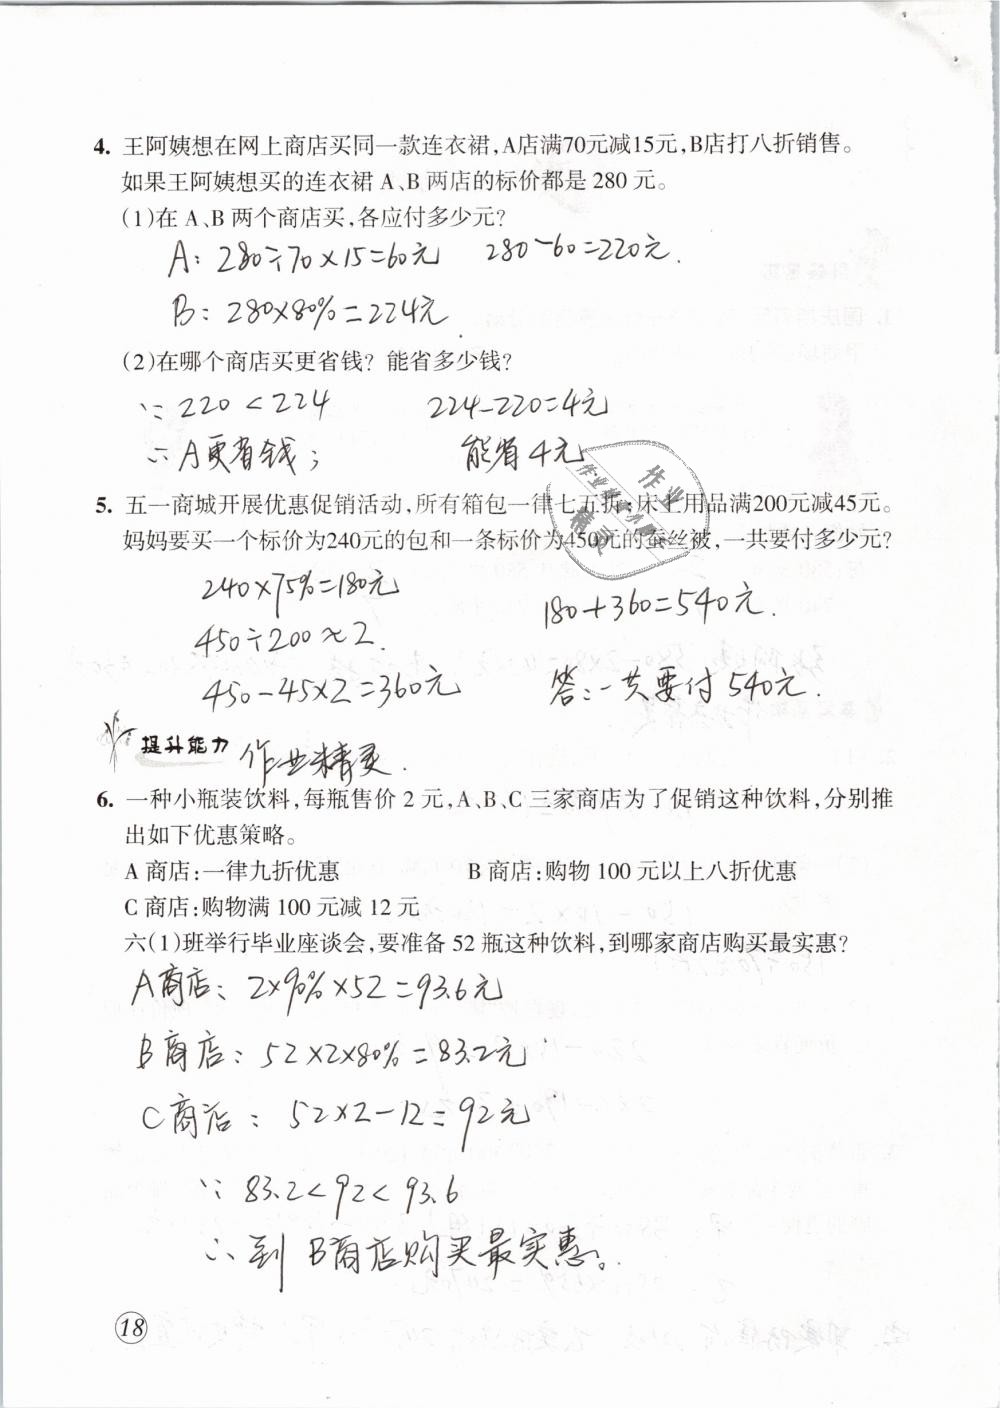 4. 王阿姨想在网上商店买同一款连衣裙,A店满70元减15元,B店打八折销售。
如果王阿姨想买的连衣裙 A、B 两店的标价都是 280 元。
(1)在 A、B 两个商店买,各应付多少元?
A: 280÷70×15=60元 280-60=220元.
B: 280×80%=224元
(2)在哪个商店买更省钱? 能省多少钱?
∵ 220<224 224-220=4元
∴ A更省钱; 能省4元
5. 五一商城开展优惠促销活动,所有箱包一律七五折;床上用品满200元减45元。
妈妈要买一个标价为240元的包和一条标价为450元的蚕丝被,一共要付多少元?
240×75%=180元
180+360=540元.
450÷200≈2.
450-45×2=360元 答:一共要付540元.
提升能力 作业精灵.
6. 一种小瓶装饮料,每瓶售价 2 元,A、B、C 三家商店为了促销这种饮料,分别推
出如下优惠策略。
A 商店:一律九折优惠 B 商店:购物 100 元以上八折优惠
C 商店:购物满 100 元减 12 元
六(1)班举行毕业座谈会,要准备 52 瓶这种饮料,到哪家商店购买最实惠?
A商店: 2×90%×52=93.6元
B商店: 52×2×80%=83.2元
C商店: 52×2-12=92元
∵ 83.2<92<93.6
∴ 到B商店购买最实惠。
18